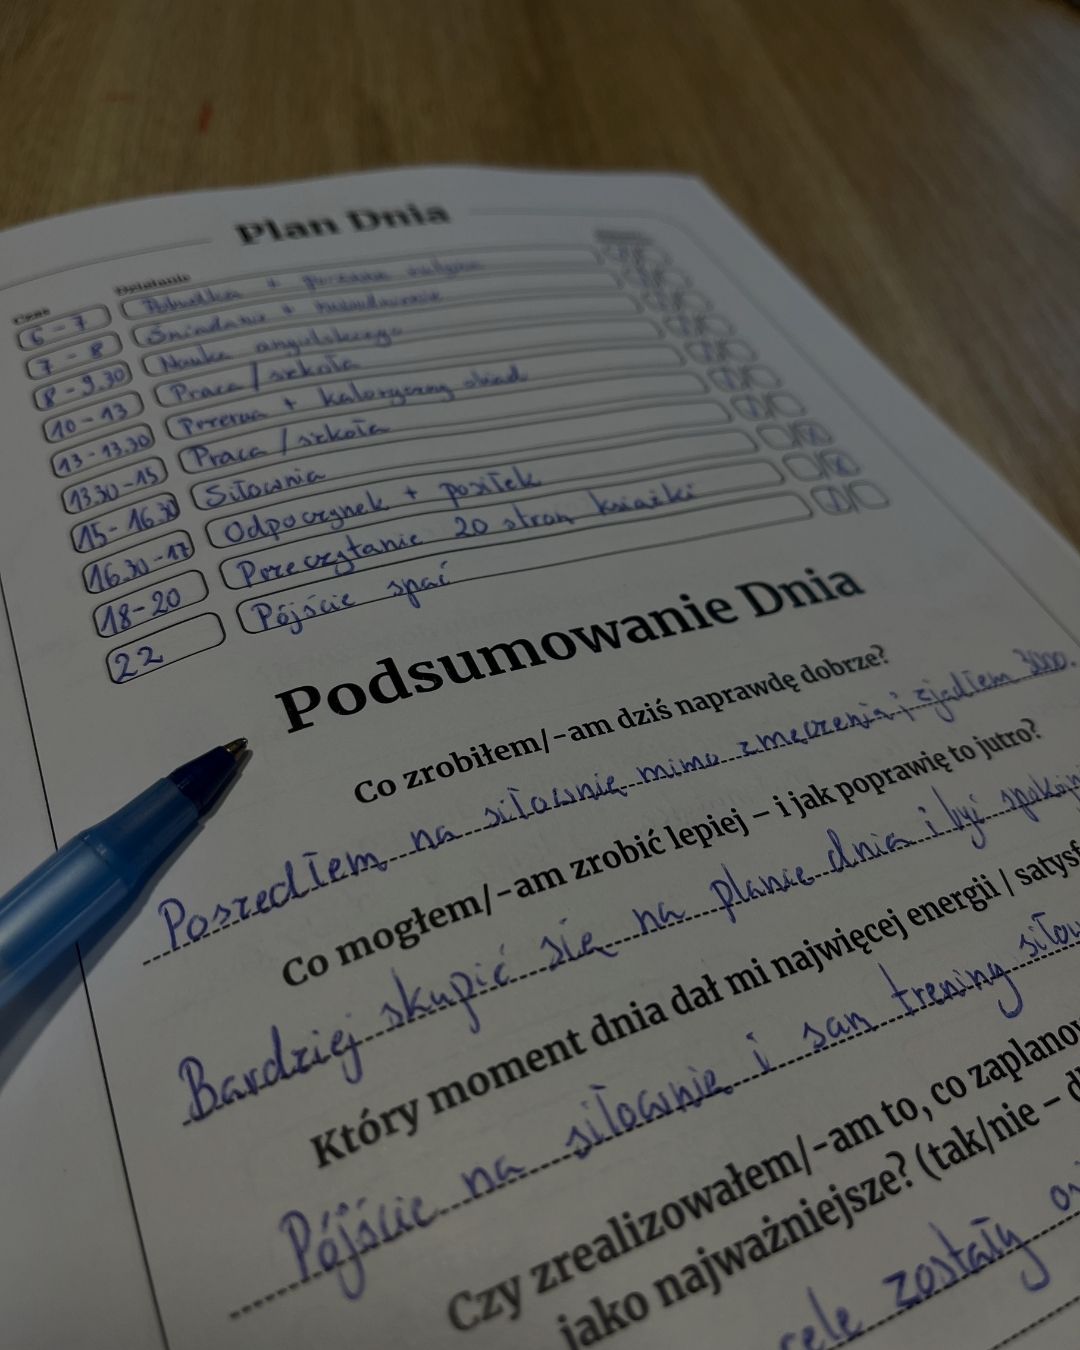 Plan Dnia
Czas Działanie
6 - 7 Pobudka + poranna rutyna
7 - 8 Śniadanie + nawodnienie
8 - 9.30 Nauka angielskiego
10 - 13 Praca / szkoła
13 - 13.30 Przerwa + kaloryczny obiad
13.30 - 15 Praca / szkoła
15 - 16.30 Siłownia
16.30 - 17 Odpoczynek + posiłek
18 - 20 Przeczytanie 20 stron książki
22 Pójście spać
Podsumowanie Dnia
Co zrobiłem/-am dziś naprawdę dobrze?
Poszedłem na siłownię mimo zmęczenia i zjadłem 3000.
Co mogłem/-am zrobić lepiej – i jak poprawię to jutro?
Bardziej skupić się na planie dnia i być
Który moment dnia dał mi najwięcej energii / satysf
Pójście na siłownię i sam trening siłow
Czy zrealizowałem/-am to, co zaplanow
jako najważniejsze? (tak/nie – dl
cele zostały